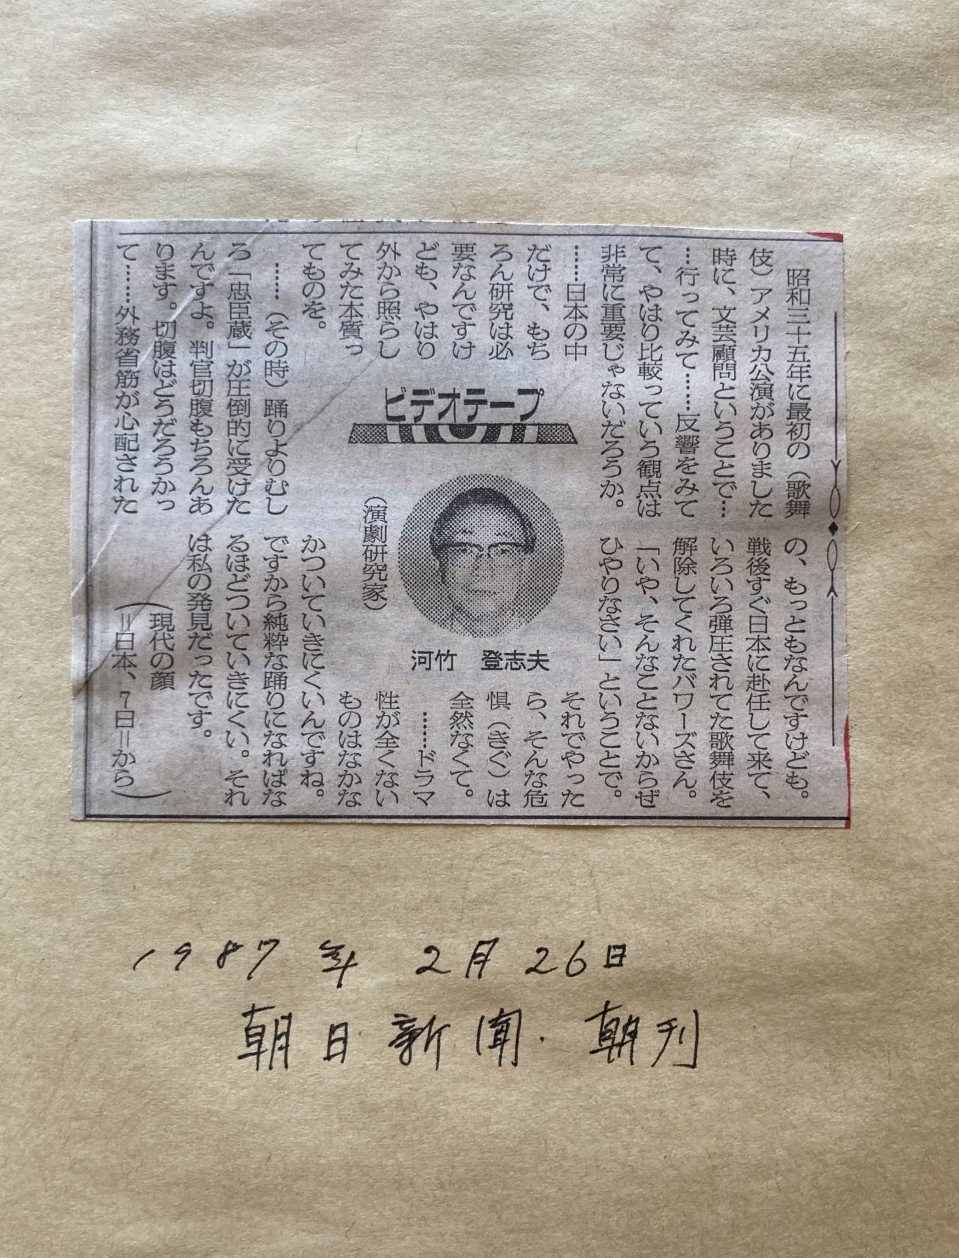 昭和三十五年に最初の（歌舞
伎）アメリカ公演がありました
時に、文芸顧問ということで…
…行ってみて……反響をみて
て、やはり比較っていう観点は
非常に重要じゃないだろうか。
……日本の中
だけで、もち
ろん研究は必
要なんですけ
ども、やはり
外から照らし
てみた本質っ
てものを。
……（その時）踊りよりむし
ろ「忠臣蔵」が圧倒的に受けた
んですよ。判官切腹もちろんあ
ります。切腹はどうだろうかっ
て……外務省筋が心配された
の、もっともなんですけども。
戦後すぐ日本に赴任して来て、
いろいろ弾圧されてた歌舞伎を
解除してくれたバワーズさん。
「いや、そんなことないからぜ
ひやりなさい」ということで。
それでやった
ら、そんな危
惧（きぐ）は
全然なくて。
……ドラマ
性が全くない
ものはなかな
かついていきにくいんですね。
ですから純粋な踊りになればな
るほどついていきにくい。それ
は私の発見だったです。
（現代の顔
＝日本、7日＝から）
ビデオテープ
河竹　登志夫
（演劇研究家）
1987年 2月26日
朝日新聞・朝刊